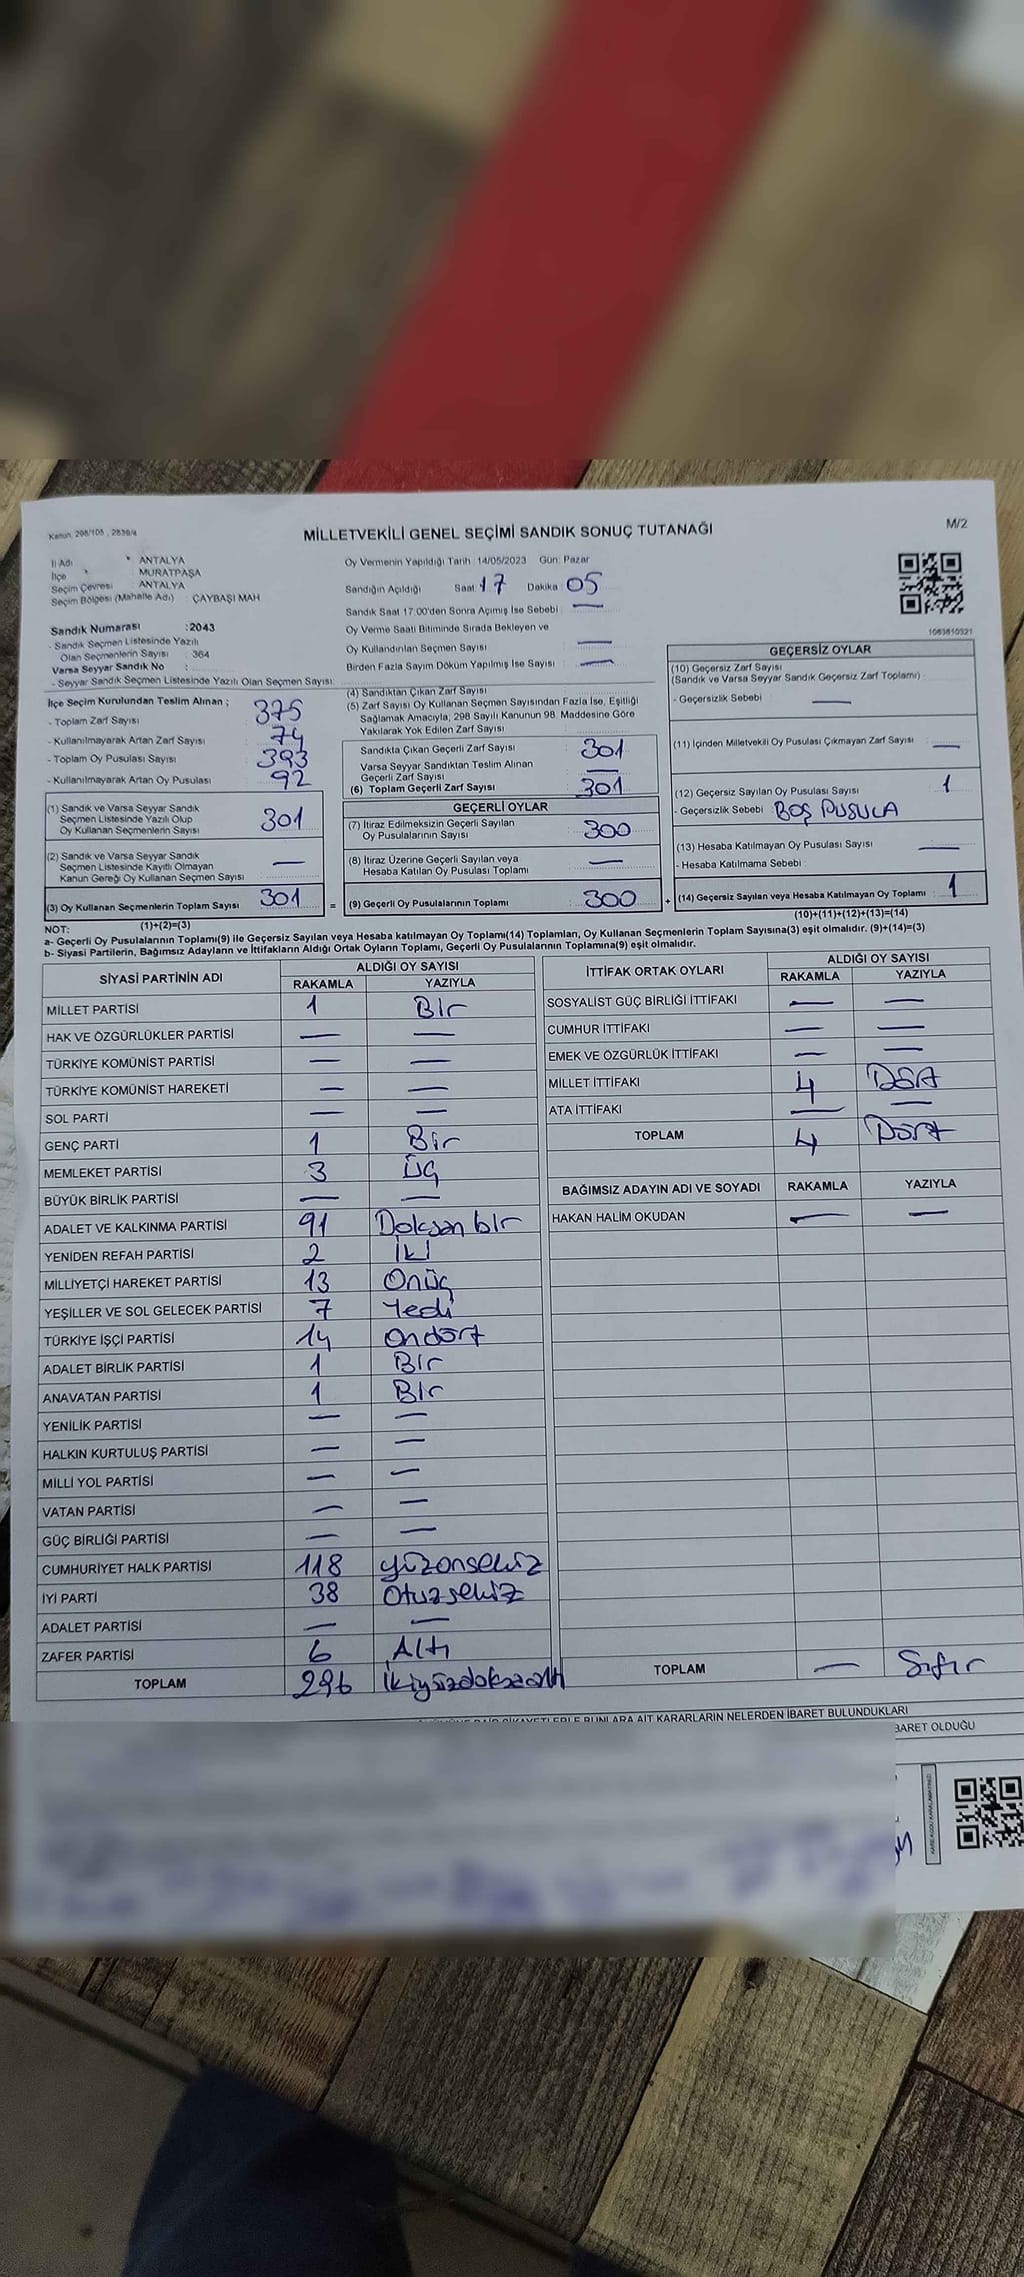 Kanun: 298/105 , 2839/4
MİLLETVEKİLİ GENEL SEÇİMİ SANDIK SONUÇ TUTANAĞI
M/2
İl Adı : ANTALYA
İlçe : MURATPAŞA
Seçim Çevresi : ANTALYA
Seçim Bölgesi (Mahalle Adı) : ÇAYBAŞI MAH.
Sandık Numarası :2043
- Sandık Seçmen Listesinde Yazılı
Olan Seçmenlerin Sayısı : 364
Varsa Seyyar Sandık No :
- Seyyar Sandık Seçmen Listesinde Yazılı Olan Seçmen Sayısı:
Oy Vermenin Yapıldığı Tarih :14/05/2023 Gün: Pazar
Sandığın Açıldığı Saat: 17 Dakika: 05
Sandık Saat 17:00'den Sonra Açımış İse Sebebi : —
Oy Verme Saati Bitiminde Sırada Bekleyen ve
Oy Kullandırılan Seçmen Sayısı : —
Birden Fazla Sayım Döküm Yapılmış İse Sayısı : —
1083810321
İlçe Seçim Kurulundan Teslim Alınan ;
- Toplam Zarf Sayısı : 375
- Kullanılmayarak Artan Zarf Sayısı : 74
- Toplam Oy Pusulası Sayısı : 393
- Kullanılmayarak Artan Oy Pusulası : 92
(1) Sandık ve Varsa Seyyar Sandık
Seçmen Listesinde Yazılı Olup
Oy Kullanan Seçmenlerin Sayısı : 301
(2) Sandık ve Varsa Seyyar Sandık
Seçmen Listesinde Kayıtlı Olmayan
Kanun Gereği Oy Kullanan Seçmen Sayısı : —
(3) Oy Kullanan Seçmenlerin Toplam Sayısı : 301
(1)+(2)=(3)
(4) Sandıktan Çıkan Zarf Sayısı :
(5) Zarf Sayısı Oy Kullanan Seçmen Sayısından Fazla İse, Eşitliği
Sağlamak Amacıyla; 298 Sayılı Kanunun 98. Maddesine Göre
Yakılarak Yok Edilen Zarf Sayısı :
Sandıkta Çıkan Geçerli Zarf Sayısı : 301
Varsa Seyyar Sandıktan Teslim Alınan
Geçerli Zarf Sayısı : —
(6) Toplam Geçerli Zarf Sayısı : 301
GEÇERLİ OYLAR
(7) İtiraz Edilmeksizin Geçerli Sayılan
Oy Pusulalarının Sayısı : 300
(8) İtiraz Üzerine Geçerli Sayılan veya
Hesaba Katılan Oy Pusulası Toplamı : —
= (9) Geçerli Oy Pusulalarının Toplamı : 300
GEÇERSİZ OYLAR
(10) Geçersiz Zarf Sayısı
(Sandık ve Varsa Seyyar Sandık Geçersiz Zarf Toplamı) :
- Geçersizlik Sebebi : —
(11) İçinden Milletvekili Oy Pusulası Çıkmayan Zarf Sayısı : —
(12) Geçersiz Sayılan Oy Pusulası Sayısı : 1
- Geçersizlik Sebebi : BOŞ PUSULA
(13) Hesaba Katılmayan Oy Pusulası Sayısı : —
- Hesaba Katılmama Sebebi :
+ (14) Geçersiz Sayılan veya Hesaba Katılmayan Oy Toplamı : 1
(10)+(11)+(12)+(13)=(14)
NOT:
a- Geçerli Oy Pusulalarının Toplamı(9) ile Geçersiz Sayılan veya Hesaba katılmayan Oy Toplamı(14) Toplamları, Oy Kullanan Seçmenlerin Toplam Sayısına(3) eşit olmalıdır. (9)+(14)=(3)
b- Siyasi Partilerin, Bağımsız Adayların ve İttifakların Aldığı Ortak Oyların Toplamı, Geçerli Oy Pusulalarının Toplamına(9) eşit olmalıdır.
SİYASİ PARTİNİN ADI ALDIĞI OY SAYISI
RAKAMLA YAZIYLA
MİLLET PARTİSİ 1 Bir
HAK VE ÖZGÜRLÜKLER PARTİSİ — —
TÜRKİYE KOMÜNİST PARTİSİ — —
TÜRKİYE KOMÜNİST HAREKETİ — —
SOL PARTİ — —
GENÇ PARTİ 1 Bir
MEMLEKET PARTİSİ 3 üç
BÜYÜK BİRLİK PARTİSİ — —
ADALET VE KALKINMA PARTİSİ 91 Doksan bir
YENİDEN REFAH PARTİSİ 2 iki
MİLLİYETÇİ HAREKET PARTİSİ 13 Onüç
YEŞİLLER VE SOL GELECEK PARTİSİ 7 Yedi
TÜRKİYE İŞÇİ PARTİSİ 14 Ondört
ADALET BİRLİK PARTİSİ 1 Bir
ANAVATAN PARTİSİ 1 Bir
YENİLİK PARTİSİ — —
HALKIN KURTULUŞ PARTİSİ — —
MİLLİ YOL PARTİSİ — —
VATAN PARTİSİ — —
GÜÇ BİRLİĞİ PARTİSİ — —
CUMHURİYET HALK PARTİSİ 118 yüzonsekiz
İYİ PARTİ 38 Otuzsekiz
ADALET PARTİSİ — —
ZAFER PARTİSİ 6 Altı
TOPLAM 296 ikiyüzdoksanaltı
İTTİFAK ORTAK OYLARI ALDIĞI OY SAYISI
RAKAMLA YAZIYLA
SOSYALİST GÜÇ BİRLİĞİ İTTİFAKI — —
CUMHUR İTTİFAKI — —
EMEK VE ÖZGÜRLÜK İTTİFAKI — —
MİLLET İTTİFAKI 4 Dört
ATA İTTİFAKI — —
TOPLAM 4 Dört
BAĞIMSIZ ADAYIN ADI VE SOYADI RAKAMLA YAZIYLA
HAKAN HALİM OKUDAN — —
TOPLAM — Sıfır
ŞİKAYETLERLE BUNLARA AİT KARARLARIN NELERDEN İBARET BULUNDUKLARI
BARET OLDUĞU